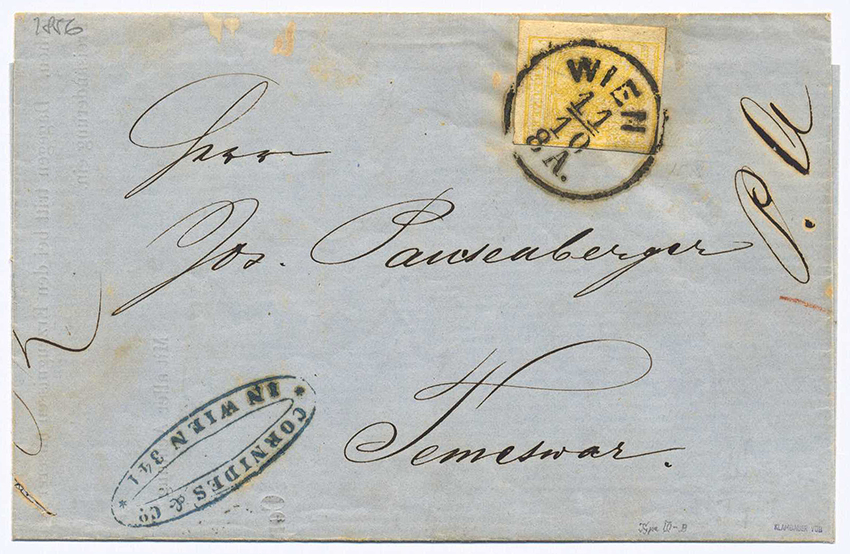 1856
WIEN
11
10
8 A.
Herrn
Jos. Pausenberger
Temeswar.
* CORNIDES & Co. *
IN WIEN 341